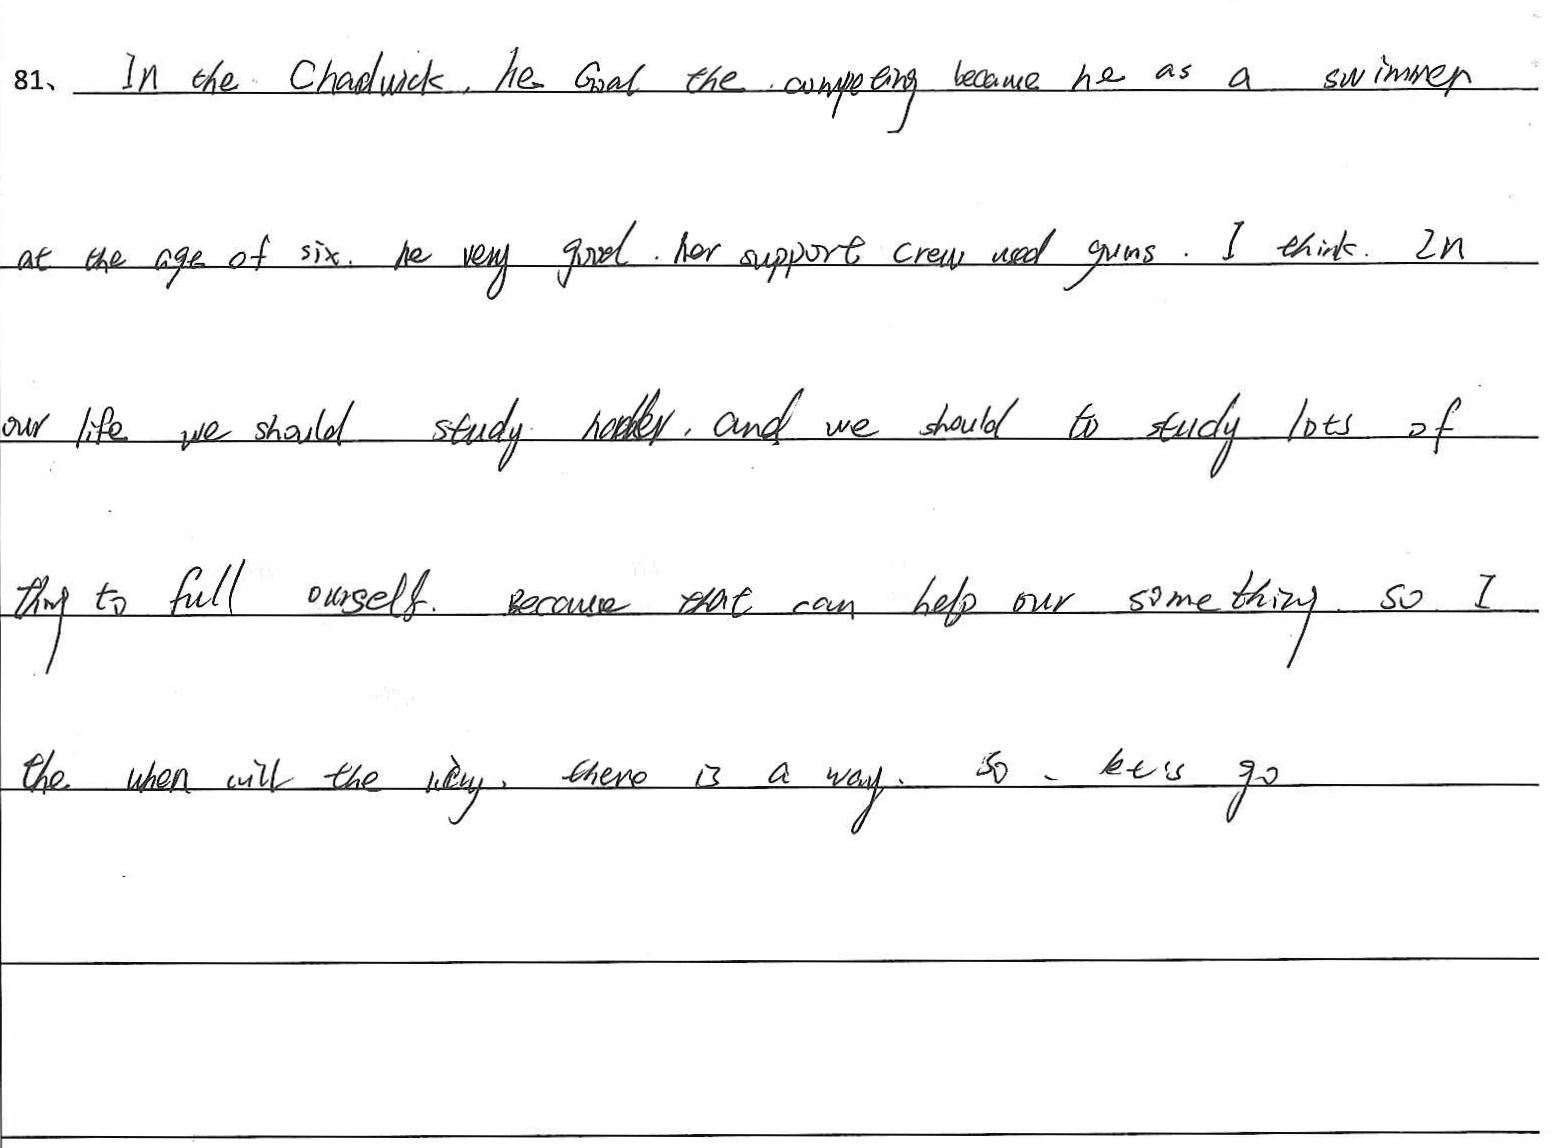 81、 In the Chadwick, he Goal the competing because he as a swimmer
at the age of six. he very good. her support crew used guns. I think. In
our life we should study harder. and we should to study lots of
thing to full ourself. Because that can help our something so I
the when will the way. there is a way. so let's go